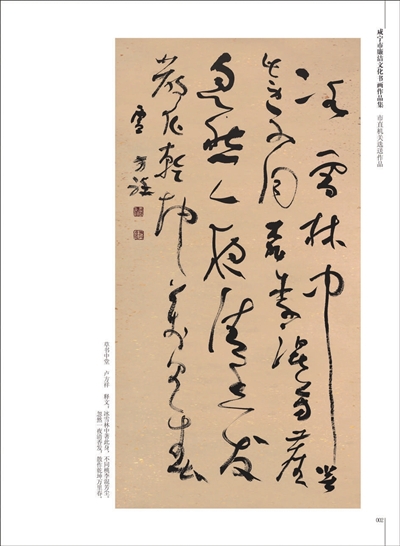 咸宁市廉洁文化书画作品集 市直机关选送作品
冰雪林中著
此身不同桃李混芳塵
忽然一夜清香发
散作乾坤万里春
方祥
草书中堂 卢方祥 释文：冰雪林中著此身，不同桃李混芳尘。
忽然一夜清香发，散作乾坤万里春。
002